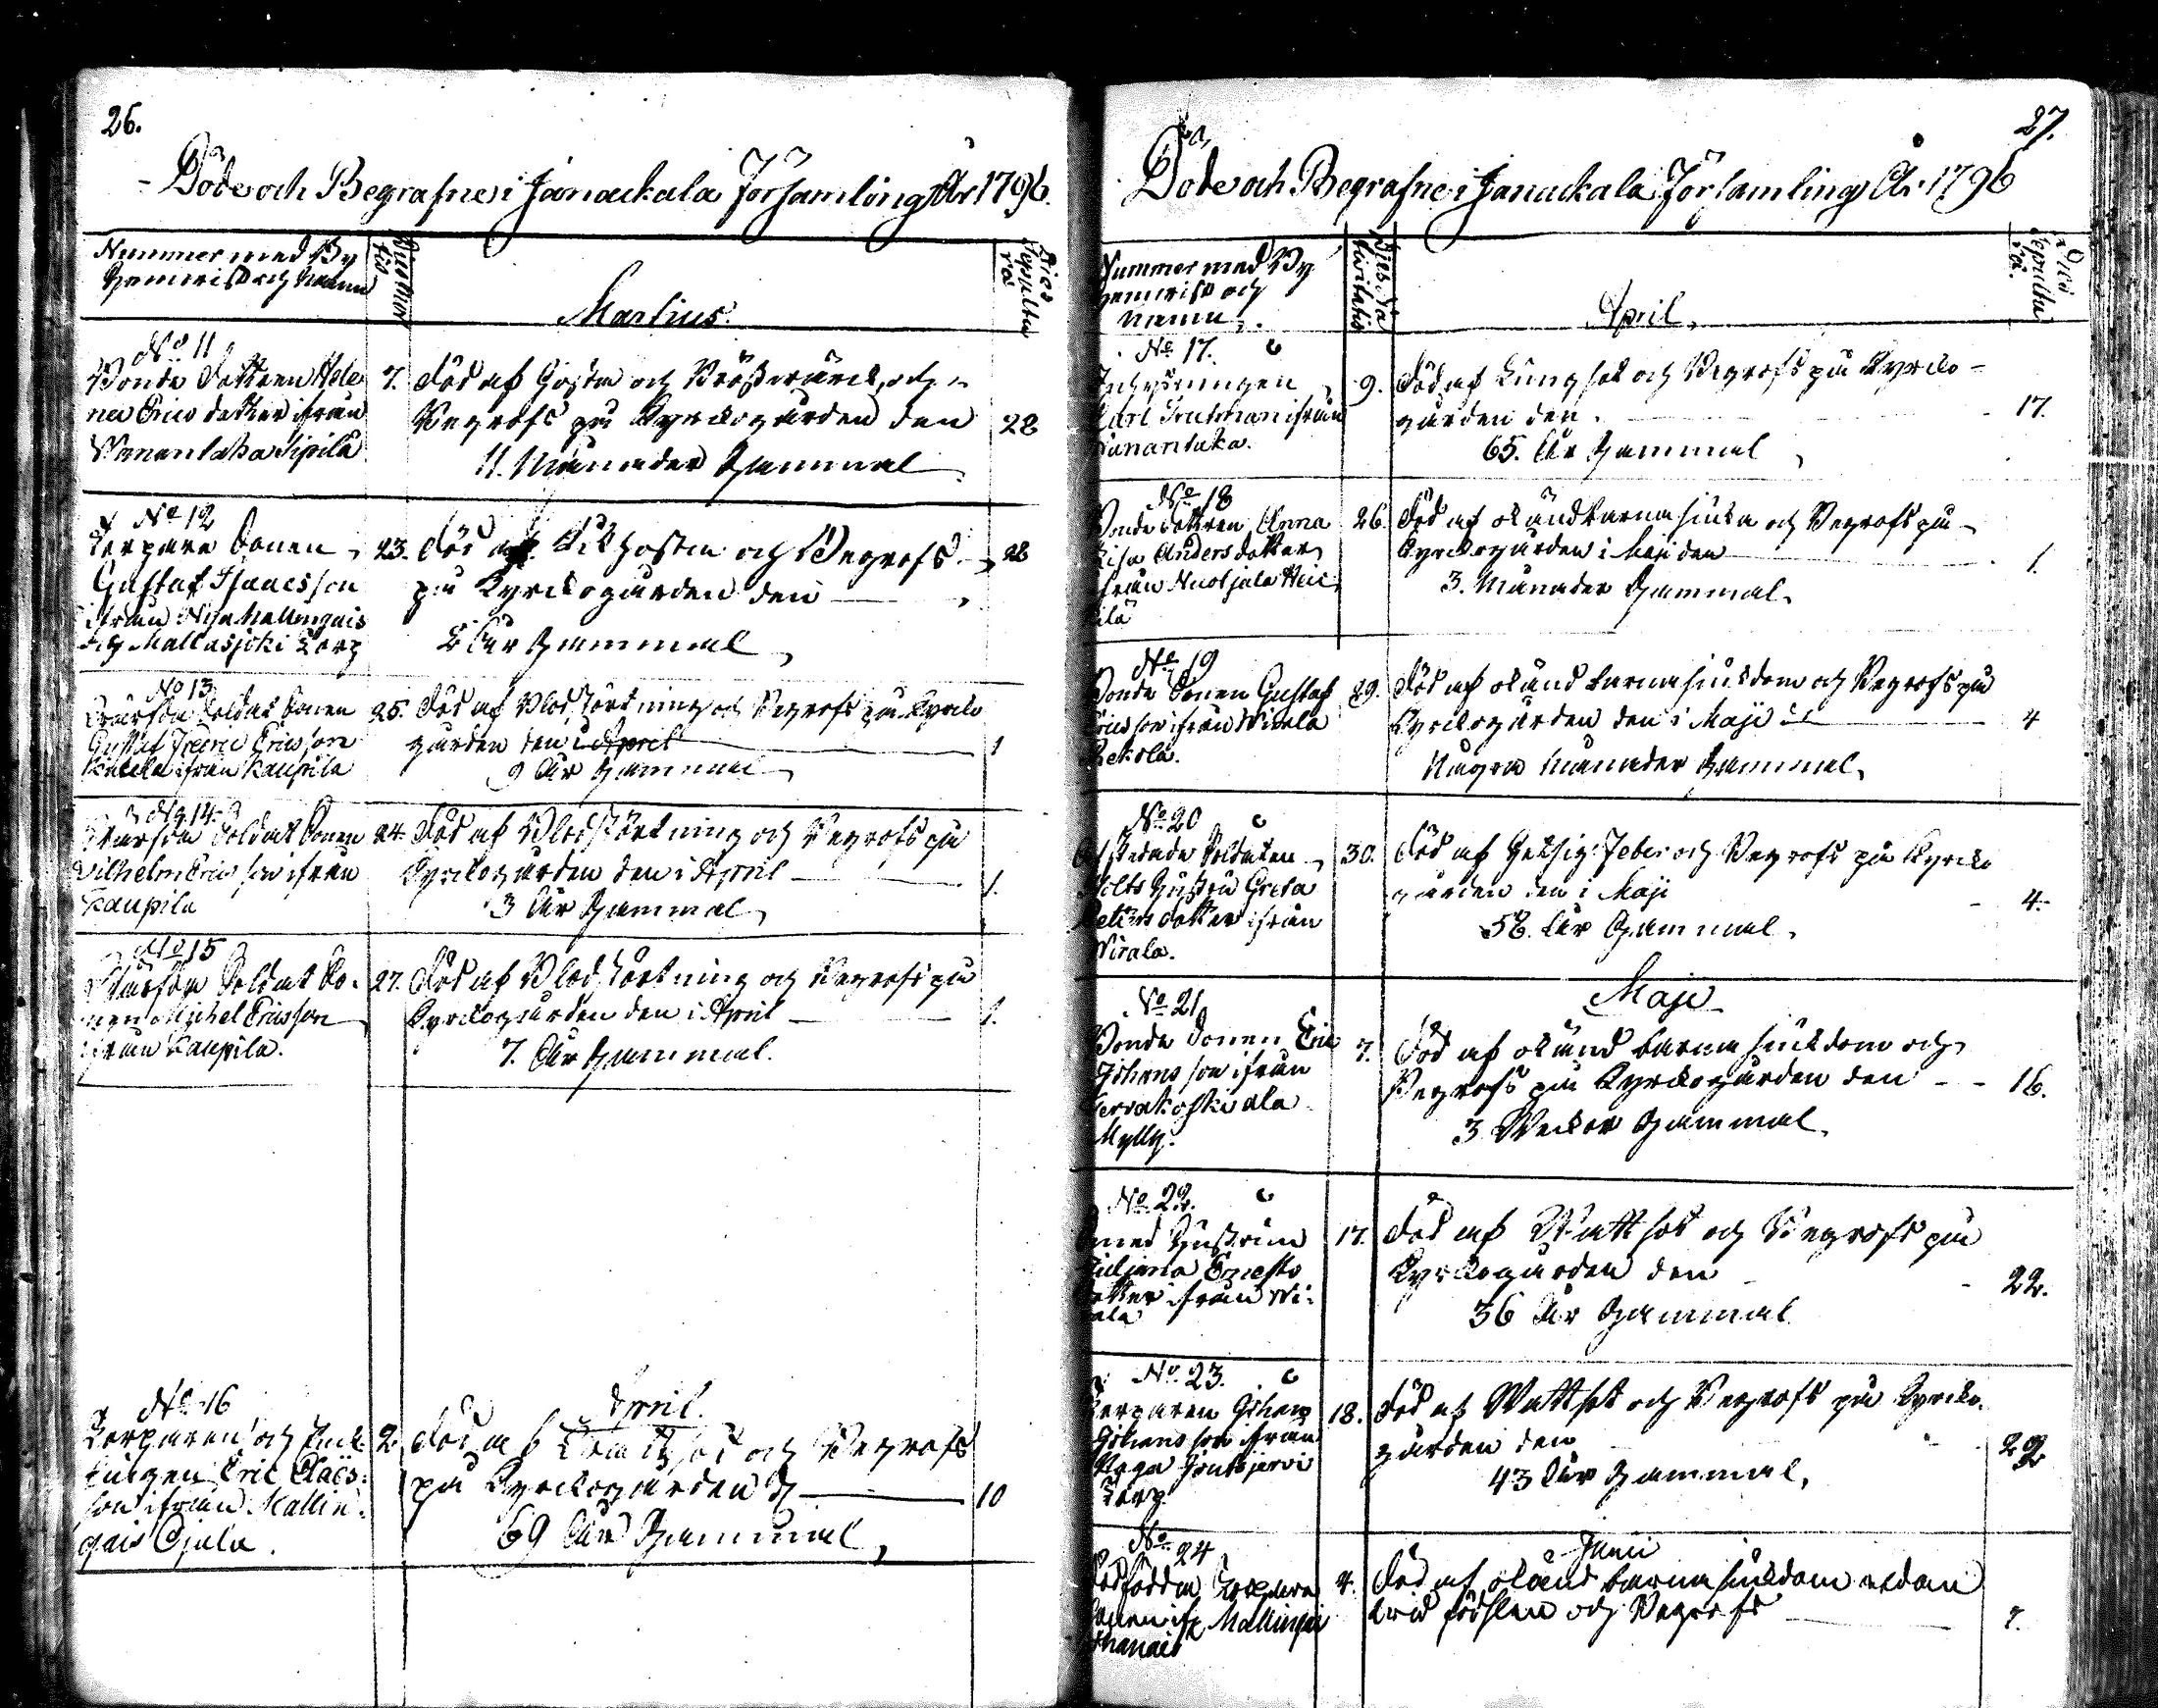 26.
Döde och Begrafne i Janackala Församling År 1796.
Nummer med By
Hemvist och Namn
Dies
Sepultu
ræ
Martius.
No 11
Bonde Dottren Hele
na Erics dotter ifrån
Wanantaka Sipilä
7. Död af Hosta och Bröstwärck, och
Begrofs på Kyrckogården den 28
11. Månader Gammal
No 12
Torpare Sonen
Gustaf Isaacsson
ifrån Mallingais
Mallasjoki Torp
23. Död af Kikhosta och Begrofs 28
på Kyrckogården den
2 År Gammal
No 13
Soldat Sonen
Gustaf Fredric Ericsson
ifrån Kaupila
25. Död af Blodstörtning och Begrofs på Kyrcko
gården den i April 1
9 År Gammal
No 14
Soldat Sonen
Wilhelm Ericsson ifrån
Kaupila
24. Död af Blodstörtning och Begrofs på
Kyrckogården den i April 1.
3 År Gammal
No 15
Soldat So-
nen Michel Ericsson
ifrån Kaupila.
27. Död af Blodstörtning och Begrofs på
Kyrckogården den i April 1.
7. År Gammal.
April.
No 16
Torparen och Enck
lingen Eric Claës-
son ifrån Mallin-
gais Ojala.
2. Död af och Begrofs
på Kyrckogården d 10
69 År Gammal
27.
Döde och Begrafne i Janackala Församling År 1796
Nummer med By
Hemvist och
Namn.
Dies
Sepultu
ræ.
April.
No 17.
Inhysingen
Carl Trutman ifrån
Wanantaka.
9. Död af Lungsot och Begrofs på Kyrcko-
gården den 17.
65. År Gammal
No 18
Bonde Dottren Anna
Lisa Anders dotter
ifrån Nuoljala Heic
kilä
26. Död af okänd barnasjuka och Begrofs på
Kyrckogården i Maji den 1.
3. Månader Gammal.
No 19
Bonde Sonen Gustaf
Ericsson ifrån Wirala
Rekola.
29. Död af okänd barnasjukdom och Begrofs på
Kyrckogården den i Maji 4
Några Månader Gammal.
No 20
Afskedade Soldaten
Stolts Hustru Greta
Petters dotter ifrån
Wirala.
30. Död af Hetsig Feber och Begrofs på Kyrcko
gården den i Maji 4.
58. År Gammal.
Maji
No 21
Bonde Sonen Eric
Johansson ifrån
Tervakoski ala
Mylly.
7. Död af okänd barnasjukdom och
Begrofs på Kyrckogården den 16.
3 Weckor Gammal.
No 22.
Hustrun
Juliana Ernests
dotter ifrån Wi-
ala
17. Död af Wattsot och Begrofs på
Kyrckogården den 22.
36 År Gammal
No 23.
Torparen Johan
Johansson ifrån
Haga
Torp.
18. Död af Wattsot och Begrofs på Kyrcko-
gården den 22
43 År Gammal.
Junii
No 24
Dödfödda Torpare
Sonen ifr Mallingai
4. Död af okänd barnasjukdom redan
wid födslen och Begrofs 7.